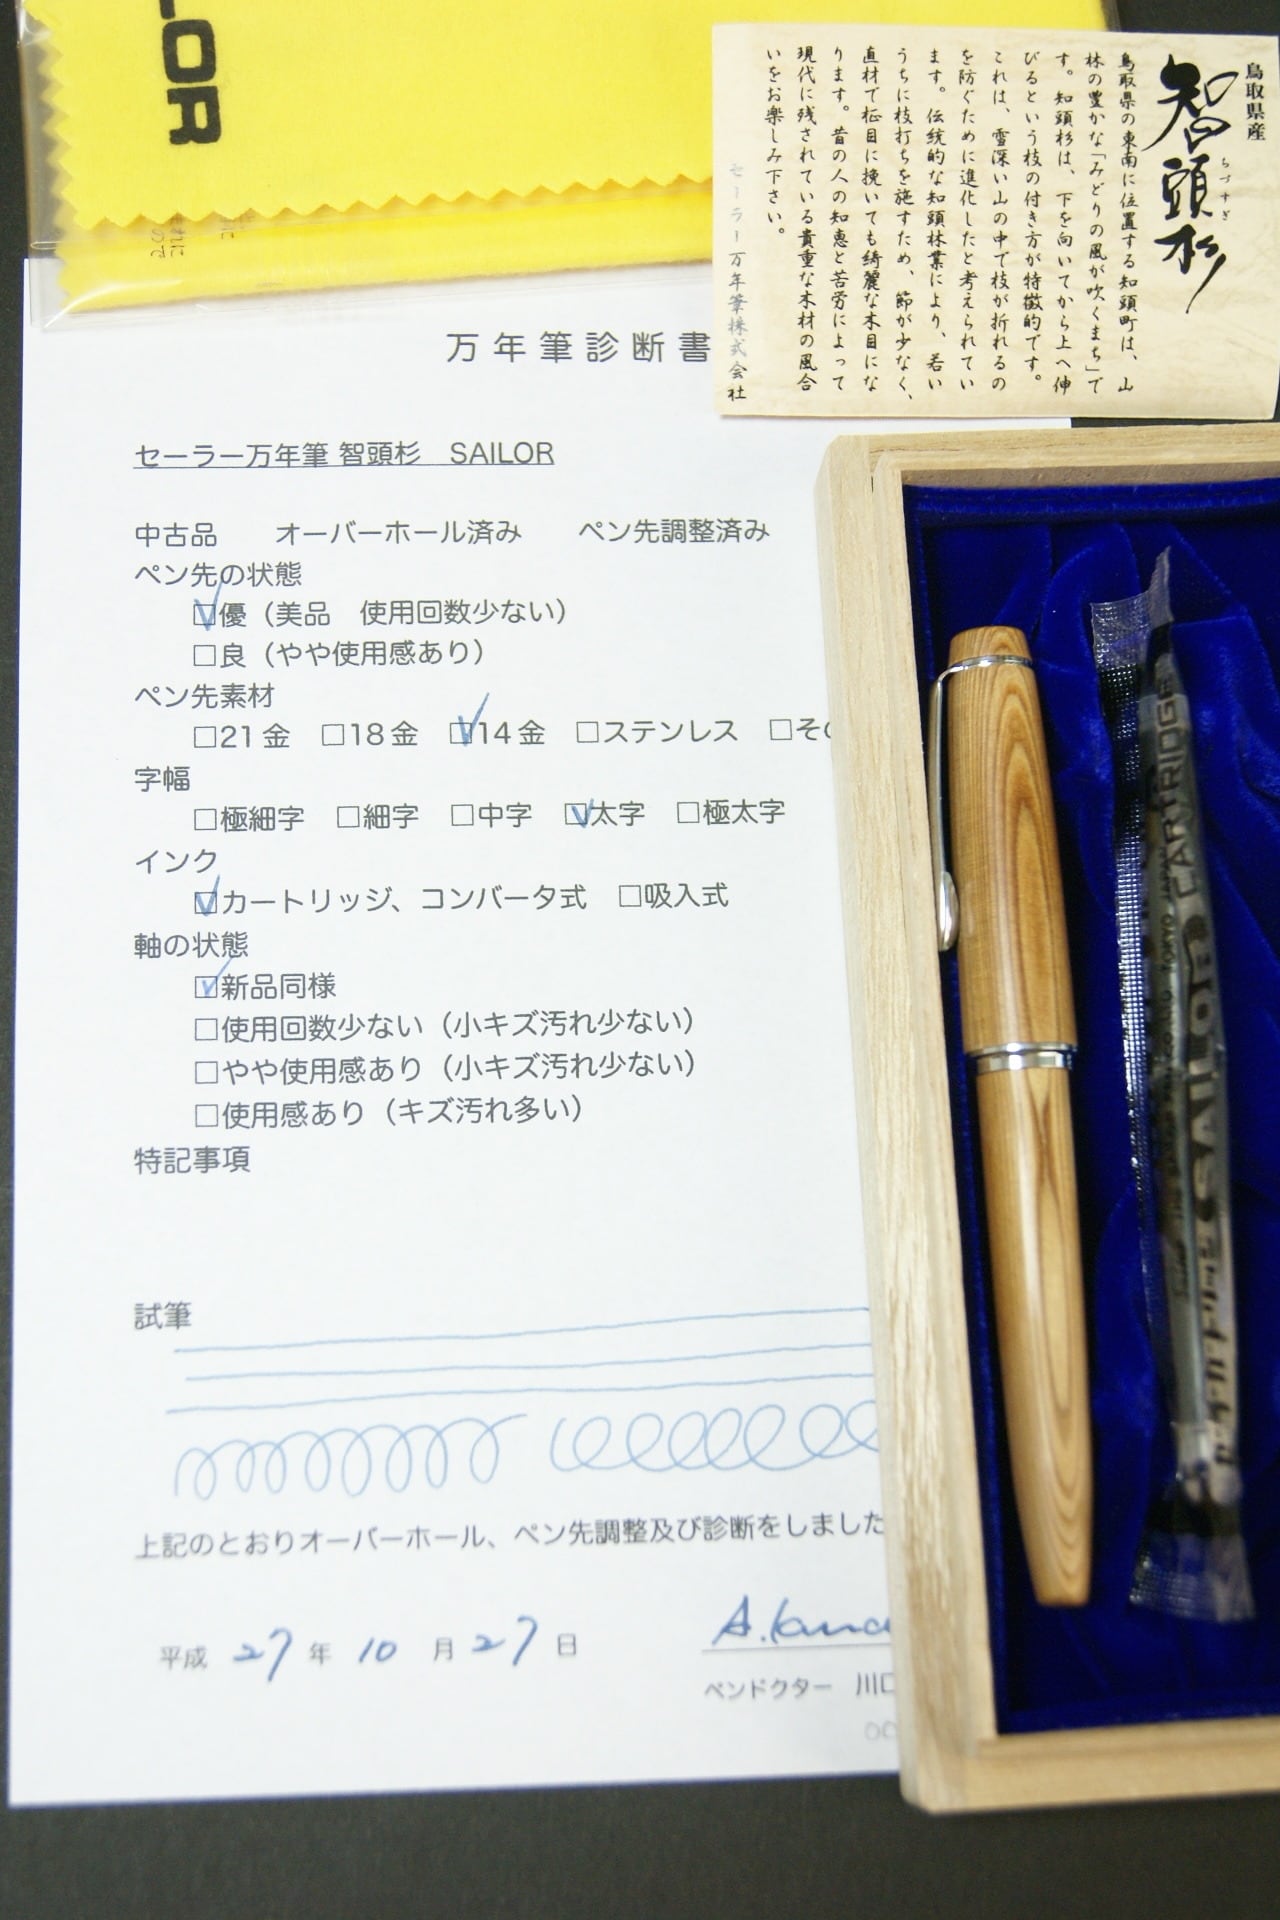 LOR
鳥取県産
智頭杉
ちづすぎ
鳥取県の東南に位置する知頭町は、山
林の豊かな「みどりの風が吹くまち」で
す。知頭杉は、下を向いてから上へ伸
びるという枝の付き方が特徴的です。
これは、雪深い山の中で枝が折れるの
を防ぐために進化したと考えられてい
ます。伝統的な知頭林業により、若い
うちに枝打ちを施すため、節が少なく、
直材で柾目に挽いても綺麗な木目にな
ります。昔の人の知恵と苦労によって
現代に残されている貴重な木材の風合
いをお楽しみ下さい。
セーラー万年筆株式会社
万年筆診断書
セーラー万年筆 智頭杉 SAILOR
中古品 オーバーホール済み ペン先調整済み
ペン先の状態
☑優（美品 使用回数少ない）
□良（やや使用感あり）
ペン先素材
□21金 □18金 ☑14金 □ステンレス □そ
字幅
□極細字 □細字 □中字 ☑太字 □極太字
インク
☑カートリッジ、コンバータ式 □吸入式
軸の状態
☑新品同様
□使用回数少ない（小キズ汚れ少ない）
□やや使用感あり（小キズ汚れ少ない）
□使用感あり（キズ汚れ多い）
特記事項
試筆
上記のとおりオーバーホール、ペン先調整及び診断をしました
平成 27 年 10 月 27 日
ペンドクター 川口
SAILOR CARTRIDGE
TOKYO JAPAN